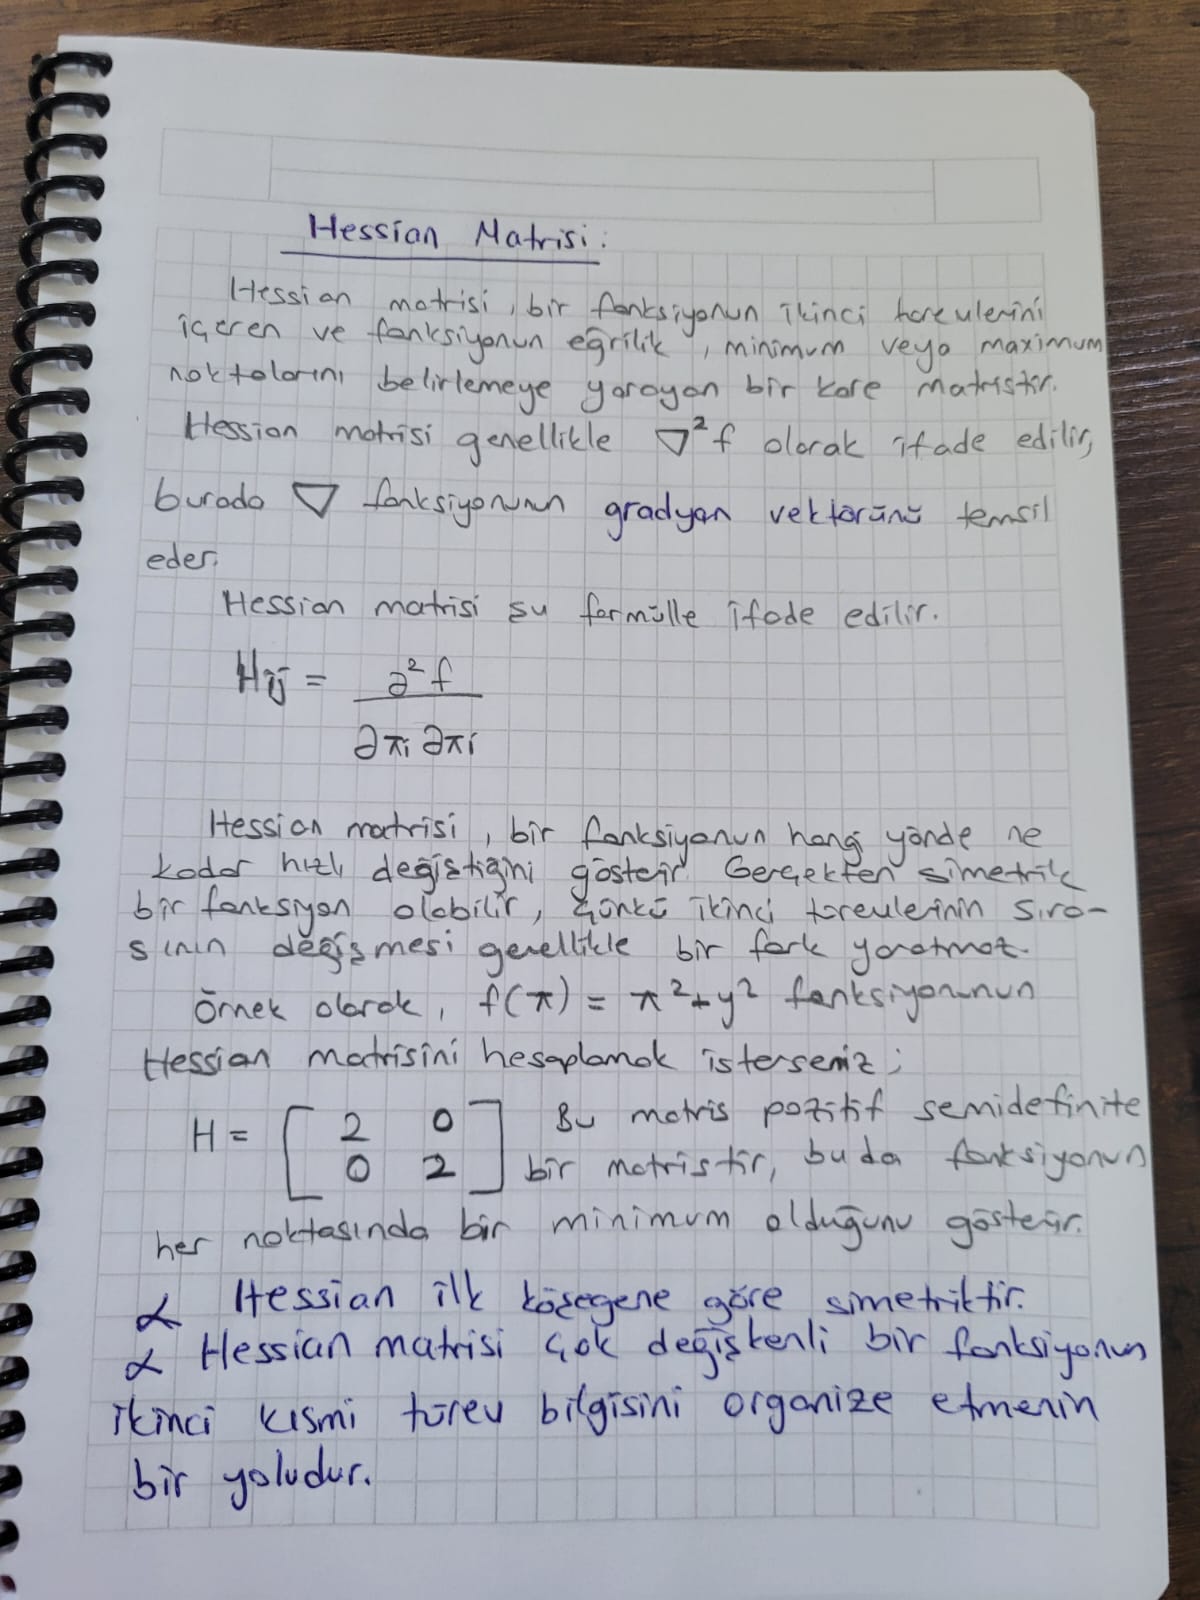 Hessian Matrisi:
Hessian matrisi, bir fonksiyonun ikinci türevlerini
içeren ve fonksiyonun eğrilik, minimum veya maximum
noktalarını belirlemeye yarayan bir kare matristir.
Hessian matrisi genellikle ∇²f olarak ifade edilir,
burada ∇ fonksiyonunun gradyan vektörünü temsil
eder.
Hessian matrisi şu formülle ifade edilir.
Hij = ∂²f
∂xi ∂xi
Hessian matrisi, bir fonksiyonun hangi yönde ne
kadar hızlı değiştiğini gösterir. Gerçekten simetrik
bir fonksiyon olabilir, çünkü ikinci türevlerinin sıra-
sının değişmesi genellikle bir fark yaratmaz.
Örnek olarak, f(x) = x²+y² fonksiyonunun
Hessian matrisini hesaplamak isterseniz;
H = [ 2 0 Bu matris pozitif semidefinite
0 2 ] bir matristir, buda fonksiyonun
her noktasında bir minimum olduğunu gösterir.
α Hessian ilk köşegene göre simetriktir.
α Hessian matrisi çok değişkenli bir fonksiyonun
ikinci kısmi türev bilgisini organize etmenin
bir yoludur.